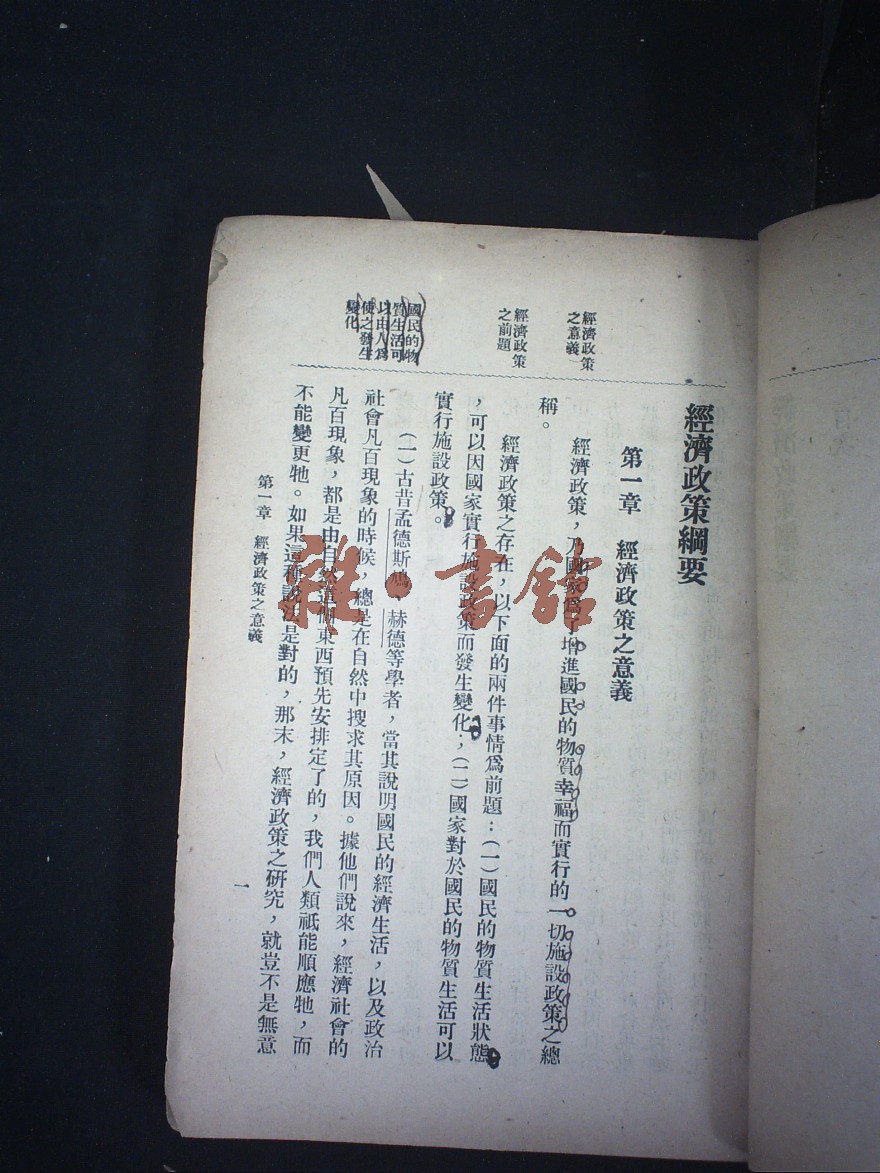 經濟政策綱要
第一章　經濟政策之意義
經濟政策
之意義
經濟政策，乃國家爲了增進國民的物質幸福而實行的一切施設政策之總
稱。
經濟政策
之前題
經濟政策之存在，以下面的兩件事情爲前題：（一）國民的物質生活狀態
，可以因國家實行施設政策而發生變化；（二）國家對於國民的物質生活可以
實行施設政策。
國民的物
質生活可
以由人爲
使之發生
變化
（一）古昔孟德斯鳩、赫德等學者，當其說明國民的經濟生活，以及政治
社會凡百現象的時候，總是在自然中搜求其原因。據他們說來，經濟社會的
凡百現象，都是由自然這個東西預先安排定了的，我們人類祇能順應牠，而
不能變更牠。如果這種說法是對的，那末，經濟政策之研究，就豈不是無意
第一章　經濟政策之意義
一
雜·書館